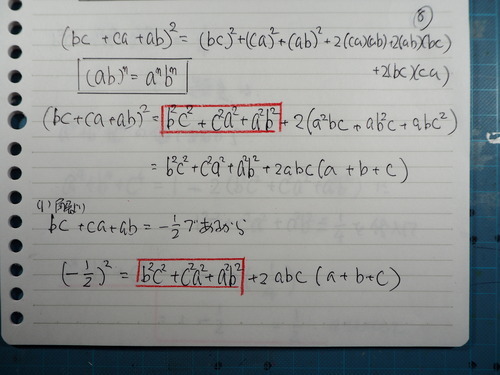 ⑧
(bc + ca + ab)² = (bc)² + (ca)² + (ab)² + 2(ca)(ab) + 2(ab)(bc)
+ 2(bc)(ca)
(ab)ⁿ = aⁿbⁿ
(bc + ca + ab)² = b²c² + c²a² + a²b² + 2(a²bc + ab²c + abc²)
= b²c² + c²a² + a²b² + 2abc(a + b + c)
bc + ca + ab = -1/2 であるから
(-1/2)² = b²c² + c²a² + a²b² + 2abc(a + b + c)